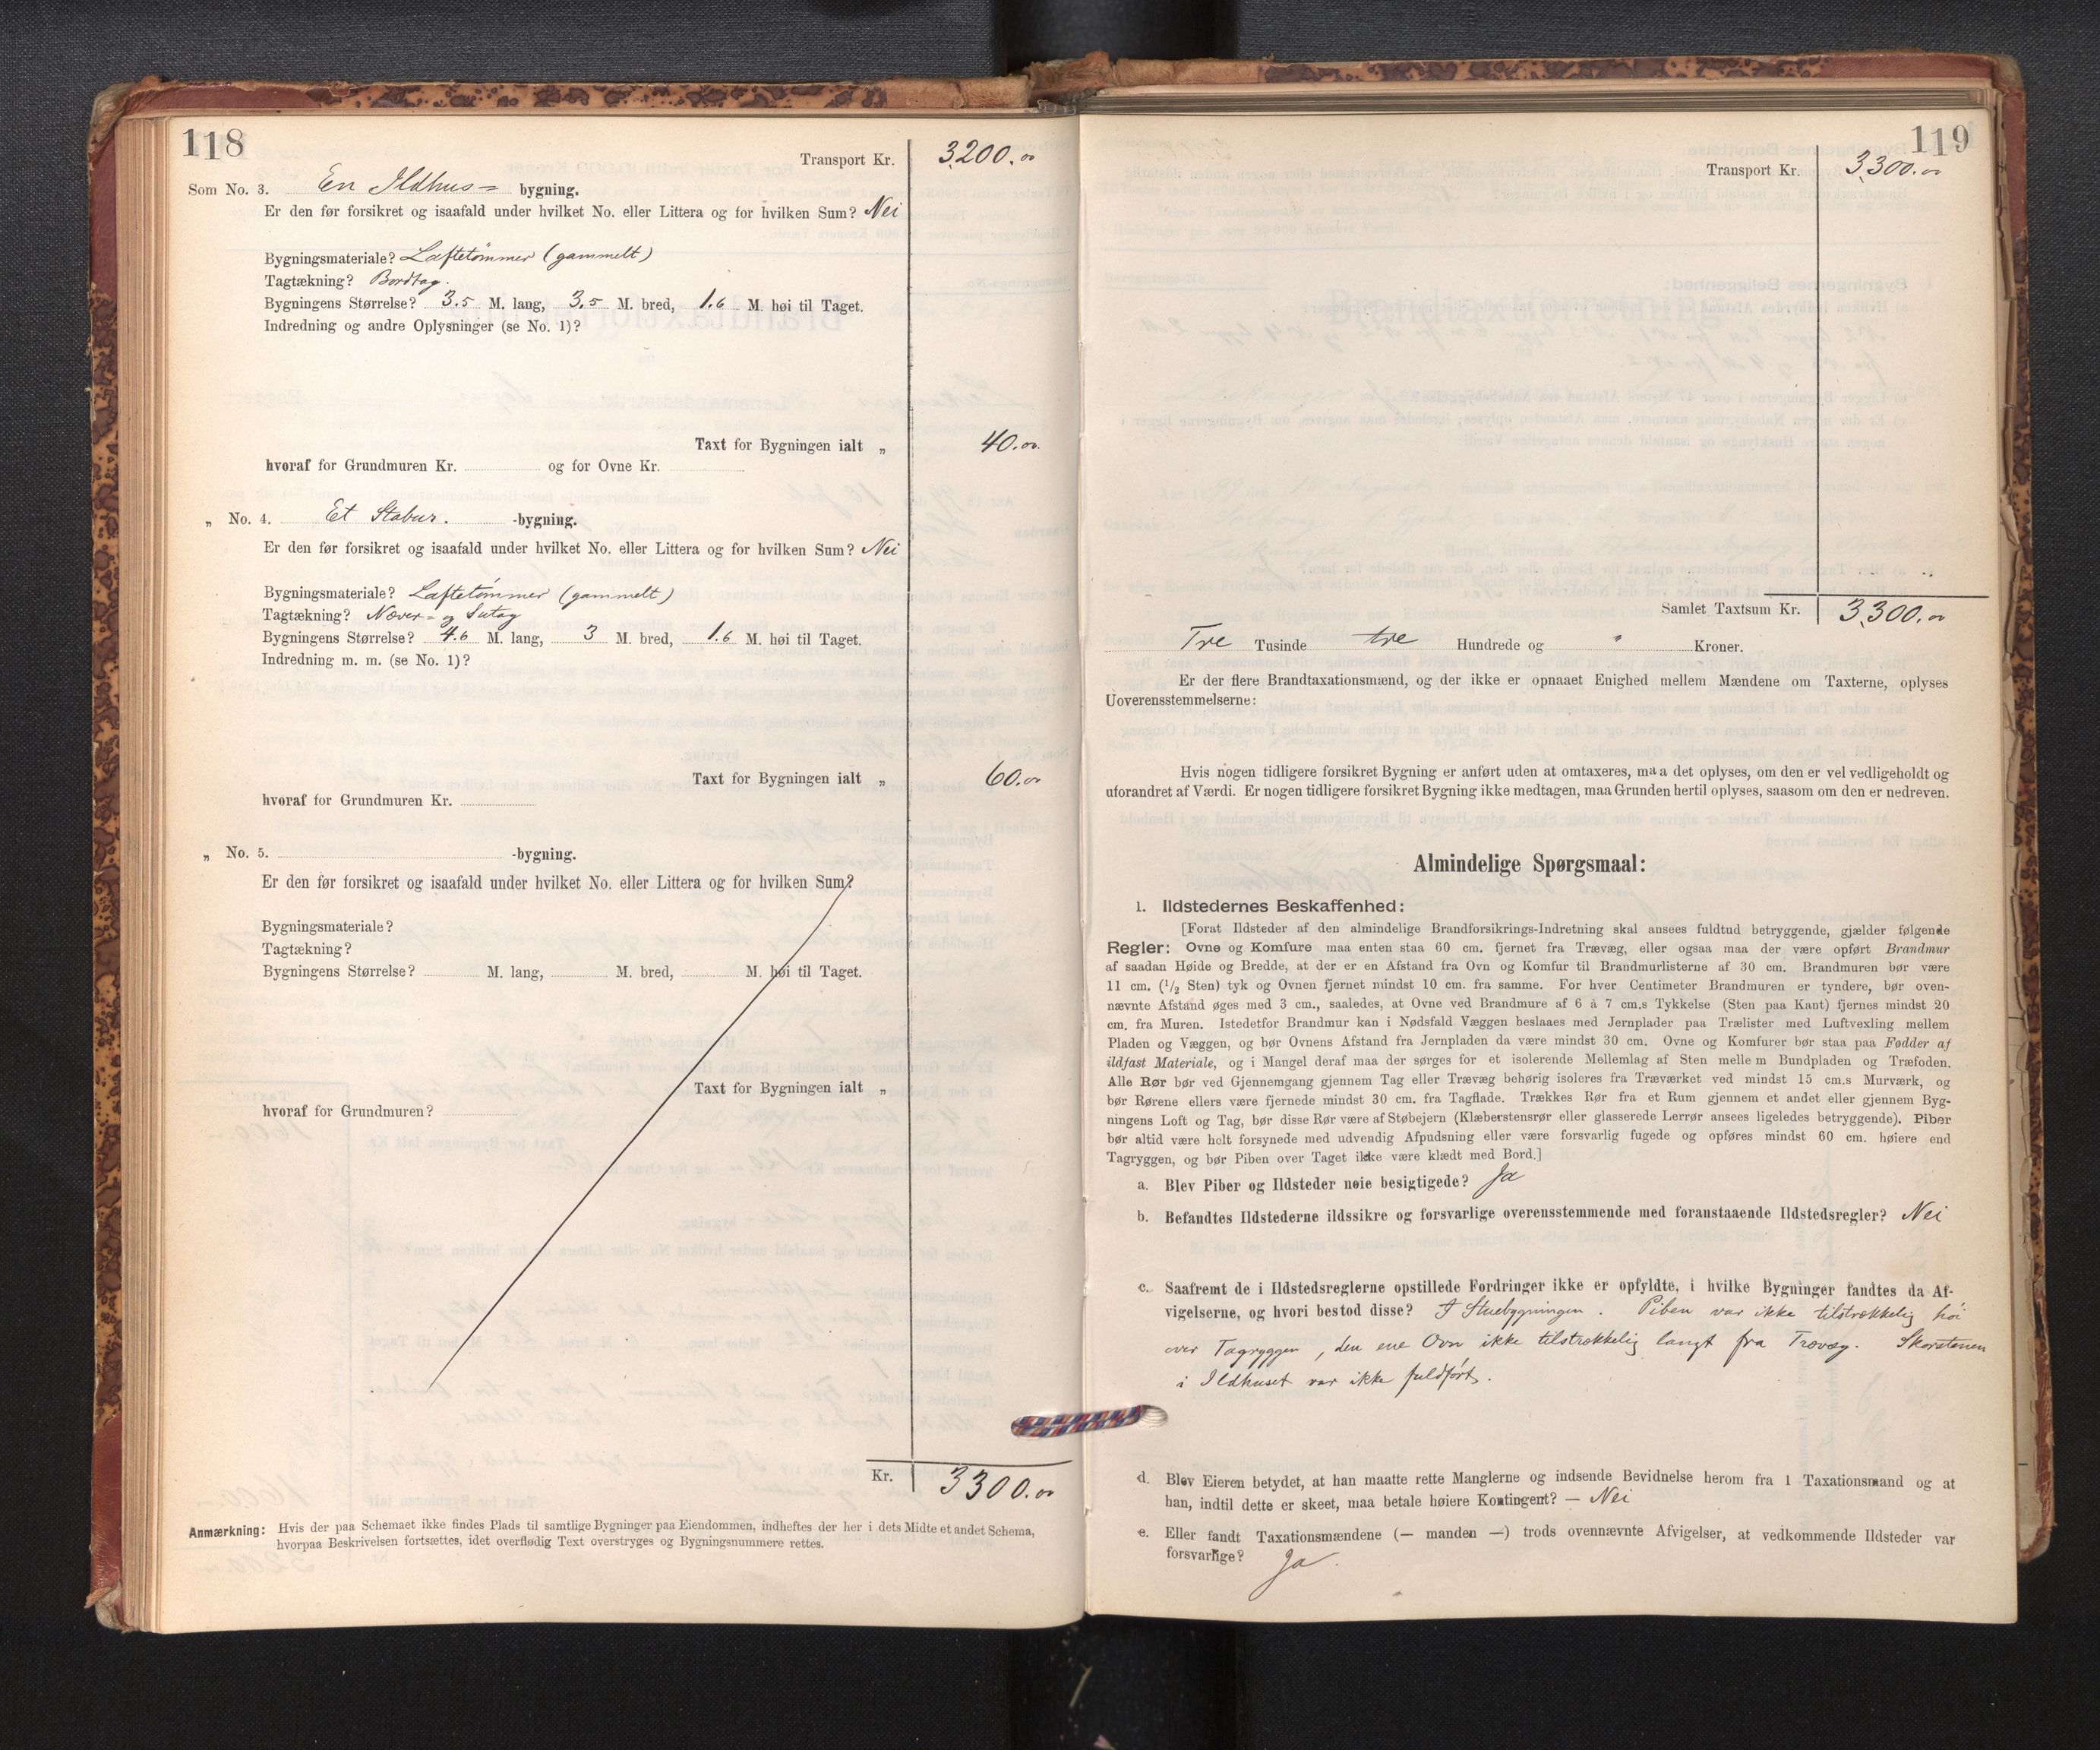 118
Transport Kr. 3200.00
Som No. 3. En Ildhus= bygning.
Er den før forsikret og isaafald under hvilket No. eller Littera og for hvilken Sum? Nei
Bygningsmateriale? Laftetømmer (gammelt)
Tagtækning? Bordtag.
Bygningens Størrelse? 3.5 M. lang, 3.5 M. bred, 1.6 M. høi til Taget.
Indredning og andre Oplysninger (se No. 1)?
Taxt for Bygningen ialt „ 40.00
hvoraf for Grundmuren Kr. og for Ovne Kr.
„ No. 4. Et Stabur. -bygning.
Er den før forsikret og isaafald under hvilket No. eller Littera og for hvilken Sum? Nei
Bygningsmateriale? Laftetømmer (gammelt)
Tagtækning? Næver= og Sutag
Bygningens Størrelse? 4.6 M. lang, 3 M. bred, 1.6 M. høi til Taget.
Indredning m. m. (se No. 1)?
Taxt for Bygningen ialt „ 60.00
hvoraf for Grundmuren Kr.
„ No. 5. -bygning.
Er den før forsikret og isaafald under hvilket No. eller Littera og for hvilken Sum?
Bygningsmateriale?
Tagtækning?
Bygningens Størrelse? M. lang, M. bred, M. høi til Taget.
Taxt for Bygningen ialt „
hvoraf for Grundmuren?
Kr. 3300.00
Anmærkning: Hvis der paa Schemaet ikke findes Plads til samtlige Bygninger paa Eiendommen, indheftes der her i dets Midte et andet Schema,
hvorpaa Beskrivelsen fortsættes, idet overflødig Text overstryges og Bygningsnummere rettes.
119
Transport Kr. 3300.00
Samlet Taxtsum Kr. 3300.00
Tre Tusinde tre Hundrede og " Kroner.
Er der flere Brandtaxationsmænd, og der ikke er opnaaet Enighed mellem Mændene om Taxterne, oplyses
Uoverensstemmelserne:
Hvis nogen tidligere forsikret Bygning er anført uden at omtaxeres, maa det oplyses, om den er vel vedligeholdt og
uforandret af Værdi. Er nogen tidligere forsikret Bygning ikke medtagen, maa Grunden hertil oplyses, saasom om den er nedreven.
Almindelige Spørgsmaal:
1. Ildstedernes Beskaffenhed:
[Forat Ildsteder af den almindelige Brandforsikrings-Indretning skal ansees fuldtud betryggende, gjælder følgende
Regler: Ovne og Komfure maa enten staa 60 cm. fjernet fra Trævæg, eller ogsaa maa der være opført Brandmur
af saadan Høide og Bredde, at der er en Afstand fra Ovn og Komfur til Brandmurlisterne af 30 cm. Brandmuren bør være
11 cm. (1/2 Sten) tyk og Ovnen fjernet mindst 10 cm. fra samme. For hver Centimeter Brandmuren er tyndere, bør oven-
nævnte Afstand øges med 3 cm., saaledes, at Ovne ved Brandmure af 6 à 7 cm.s Tykkelse (Sten paa Kant) fjernes mindst 20
cm. fra Muren. Istedetfor Brandmur kan i Nødsfald Væggen beslaaes med Jernplader paa Trælister med Luftvexling mellem
Pladen og Væggen, og bør Ovnens Afstand fra Jernpladen da være mindst 30 cm. Ovne og Komfurer bør staa paa Fødder af
ildfast Materiale, og i Mangel deraf maa der sørges for et isolerende Mellemlag af Sten mellem Bundpladen og Træfoden.
Alle Rør bør ved Gjennemgang gjennem Tag eller Trævæg behørig isoleres fra Træværket ved mindst 15 cm.s Murværk, og
bør Rørene ellers være fjernede mindst 30 cm. fra Tagflade. Trækkes Rør fra et Rum gjennem et andet eller gjennem Byg-
ningens Loft og Tag, bør disse Rør være af Støbejern (Klæberstensrør eller glasserede Lerrør ansees ligeledes betryggende). Piber
bør altid være helt forsynede med udvendig Afpudsning eller være forsvarlig fugede og opføres mindst 60 cm. høiere end
Tagryggen, og bør Piben over Taget ikke være klædt med Bord.]
a. Blev Piber og Ildsteder nøie besigtigede? Ja
b. Befandtes Ildstederne ildssikre og forsvarlige overensstemmende med foranstaaende Ildstedsregler? Nei
c. Saafremt de i Ildstedsreglerne opstillede Fordringer ikke er opfyldte, i hvilke Bygninger fandtes da Af-
vigelserne, og hvori bestod disse? I Stuebygningen. Piben var ikke tilstrækkelig høi
over Tagryggen, den ene Ovn ikke tilstrækkelig langt fra Trævæg. Skorstenen
i Ildhuset var ikke fuldført.
d. Blev Eieren betydet, at han maatte rette Manglerne og indsende Bevidnelse herom fra 1 Taxationsmand og at
han, indtil dette er skeet, maa betale høiere Kontingent? — Nei
e. Eller fandt Taxationsmændene (— manden —) trods ovennævnte Afvigelser, at vedkommende Ildsteder var
forsvarlige? Ja.